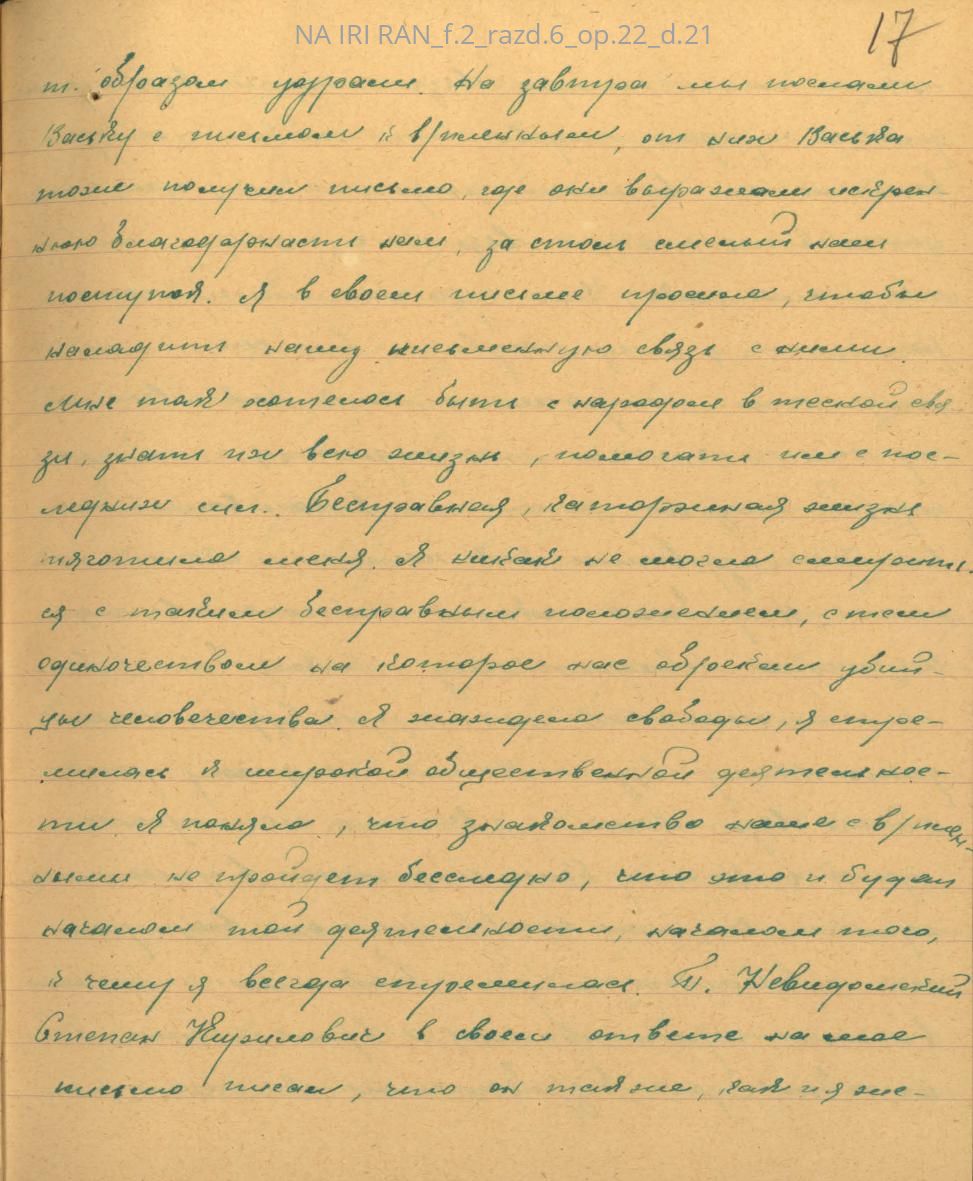 NA IRI RAN_f.2_razd.6_op.22_d.21
17
т. образом удрали. На завтра мы послали
Ваську с письмом к в/пленным, от них Васька
тоже получил письмо, где они выражали искрен-
нюю благодарность нам, за столь смелый наш
поступок. Я в своем письме просила, чтобы
наладить нашу письменную связь с ними.
Мне так хотелось быть с народом в теской свя
зи, знать их всю жизнь, помогать им с пос-
ледних сил. Бесправная, каторжная жизнь
тяготила меня. Я никак не могла смирить-
ся с таким бесправным положением, с тем
одиночеством на которое нас обрекли убий-
цы человечества. Я жаждела свободы, я стре-
милась к широкой общественной деятельнос-
ти. Я поняла, что знакомство наше с в/плен-
ными не пройдет бесследно, что это и будет
началом той деятельности, началом того,
к чему я всегда стремилась. Т. Невидомский
Степан Кирилович в своем ответе на мое
письмо писал, что он также, как и я же-